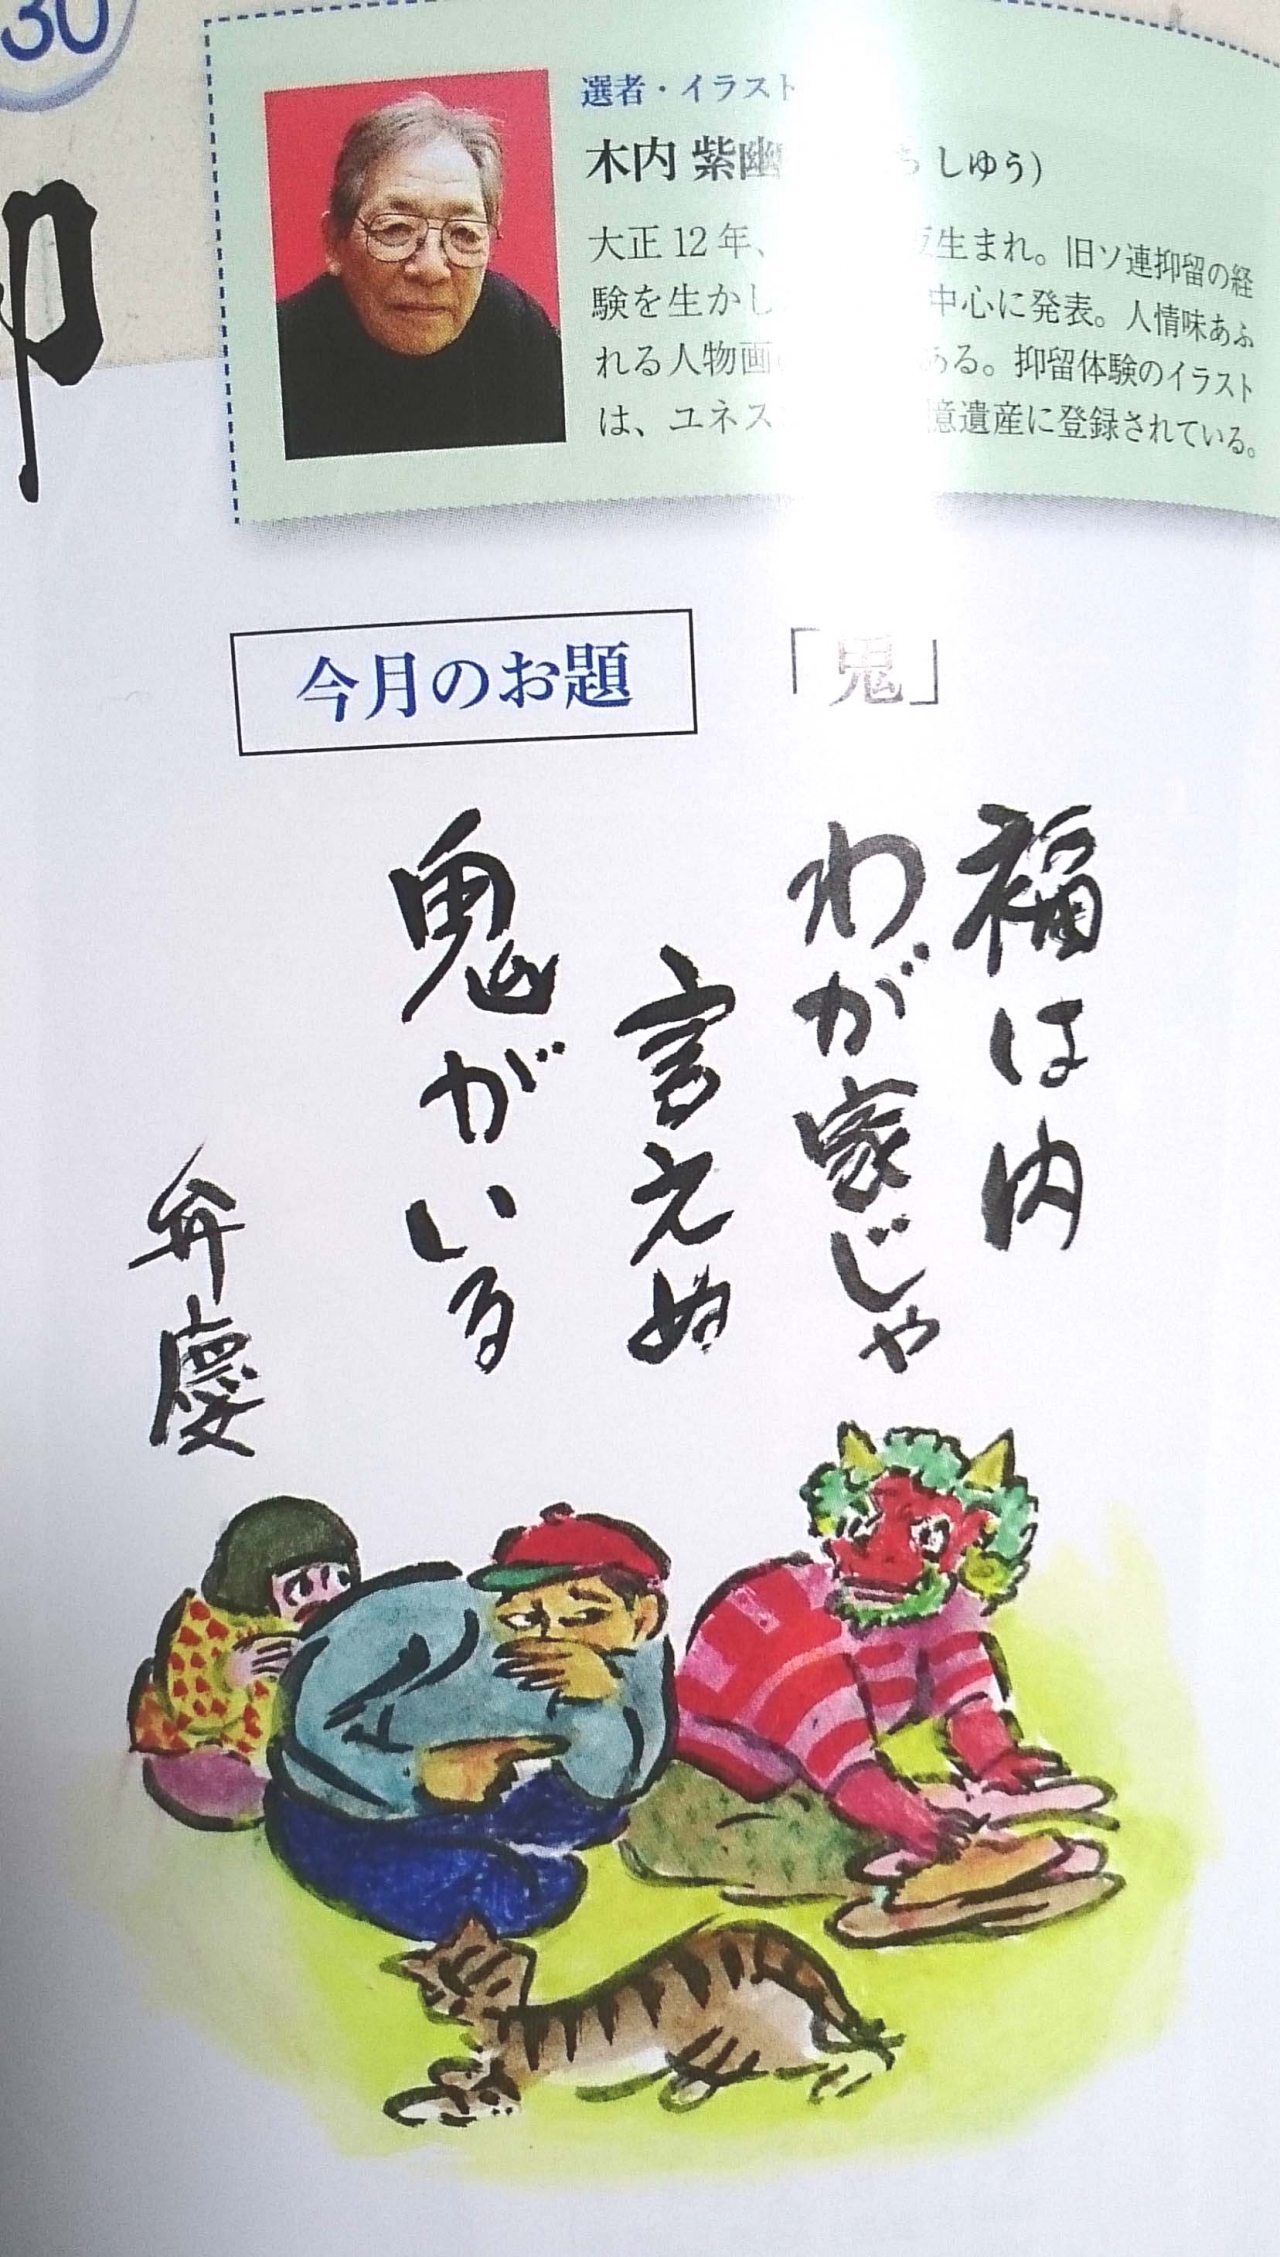 30
選者・イラスト
木内 紫幽 ち しゆう）
大正12年、 生まれ。旧ソ連抑留の経
験を生かし 中心に発表。人情味あふ
れる人物画 ある。抑留体験のイラスト
は、ユネス 憶遺産に登録されている。
今月のお題 「鬼」
福は内
わが家じゃ
言えぬ
鬼がいる
弁慶